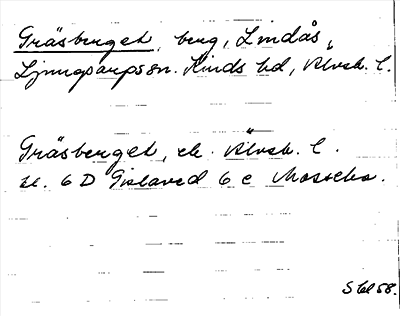 Gräsberget, berg, Lindås,
Ljungsarps sn. Kinds hd, Älvsb. l.
Gräsberget, ek. Älvsb. l.
bl. 6 D Gislaved 6 c Mossebo.
S bl 58.